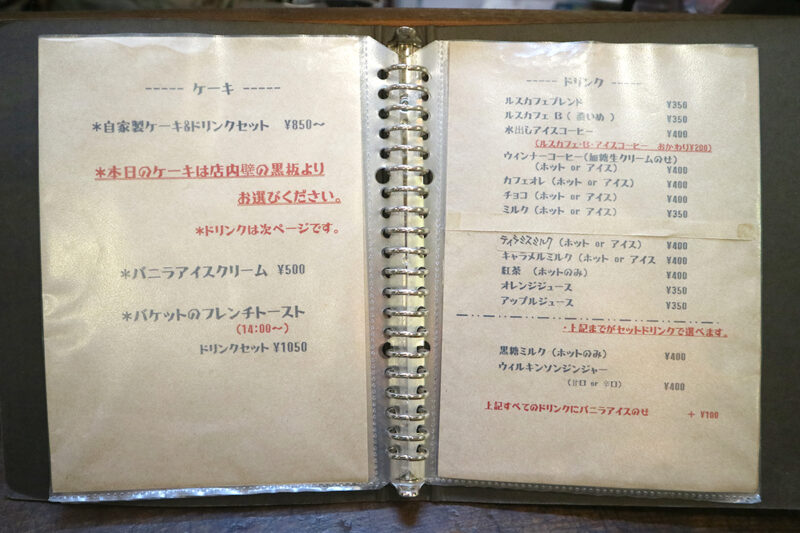 ----- ケーキ -----
*自家製ケーキ&ドリンクセット ¥850～
*本日のケーキは店内壁の黒板より
お選びください。
*ドリンクは次ページです。
*バニラアイスクリーム ¥500
*バケットのフレンチトースト
(14:00～)
ドリンクセット ¥1050
----- ドリンク -----
ルスカフェブレンド ¥350
ルスカフェ B ( 濃いめ ) ¥350
水出しアイスコーヒー ¥400
(ルスカフェ・B・アイスコーヒー おかわり¥200)
ウィンナーコーヒー(無糖生クリームのせ)
(ホット or アイス) ¥400
カフェオレ (ホット or アイス) ¥400
チョコ (ホット or アイス) ¥400
ミルク (ホット or アイス) ¥350
ティラミスミルク (ホット or アイス) ¥400
キャラメルミルク (ホット or アイス ¥400
紅茶 (ホットのみ) ¥400
オレンジジュース ¥350
アップルジュース ¥350
・上記までがセットドリンクで選べます。
黒糖ミルク (ホットのみ) ¥400
ウィルキンソンジンジャー
(甘口 or 辛口) ¥400
上記すべてのドリンクにバニラアイスのせ + ¥100